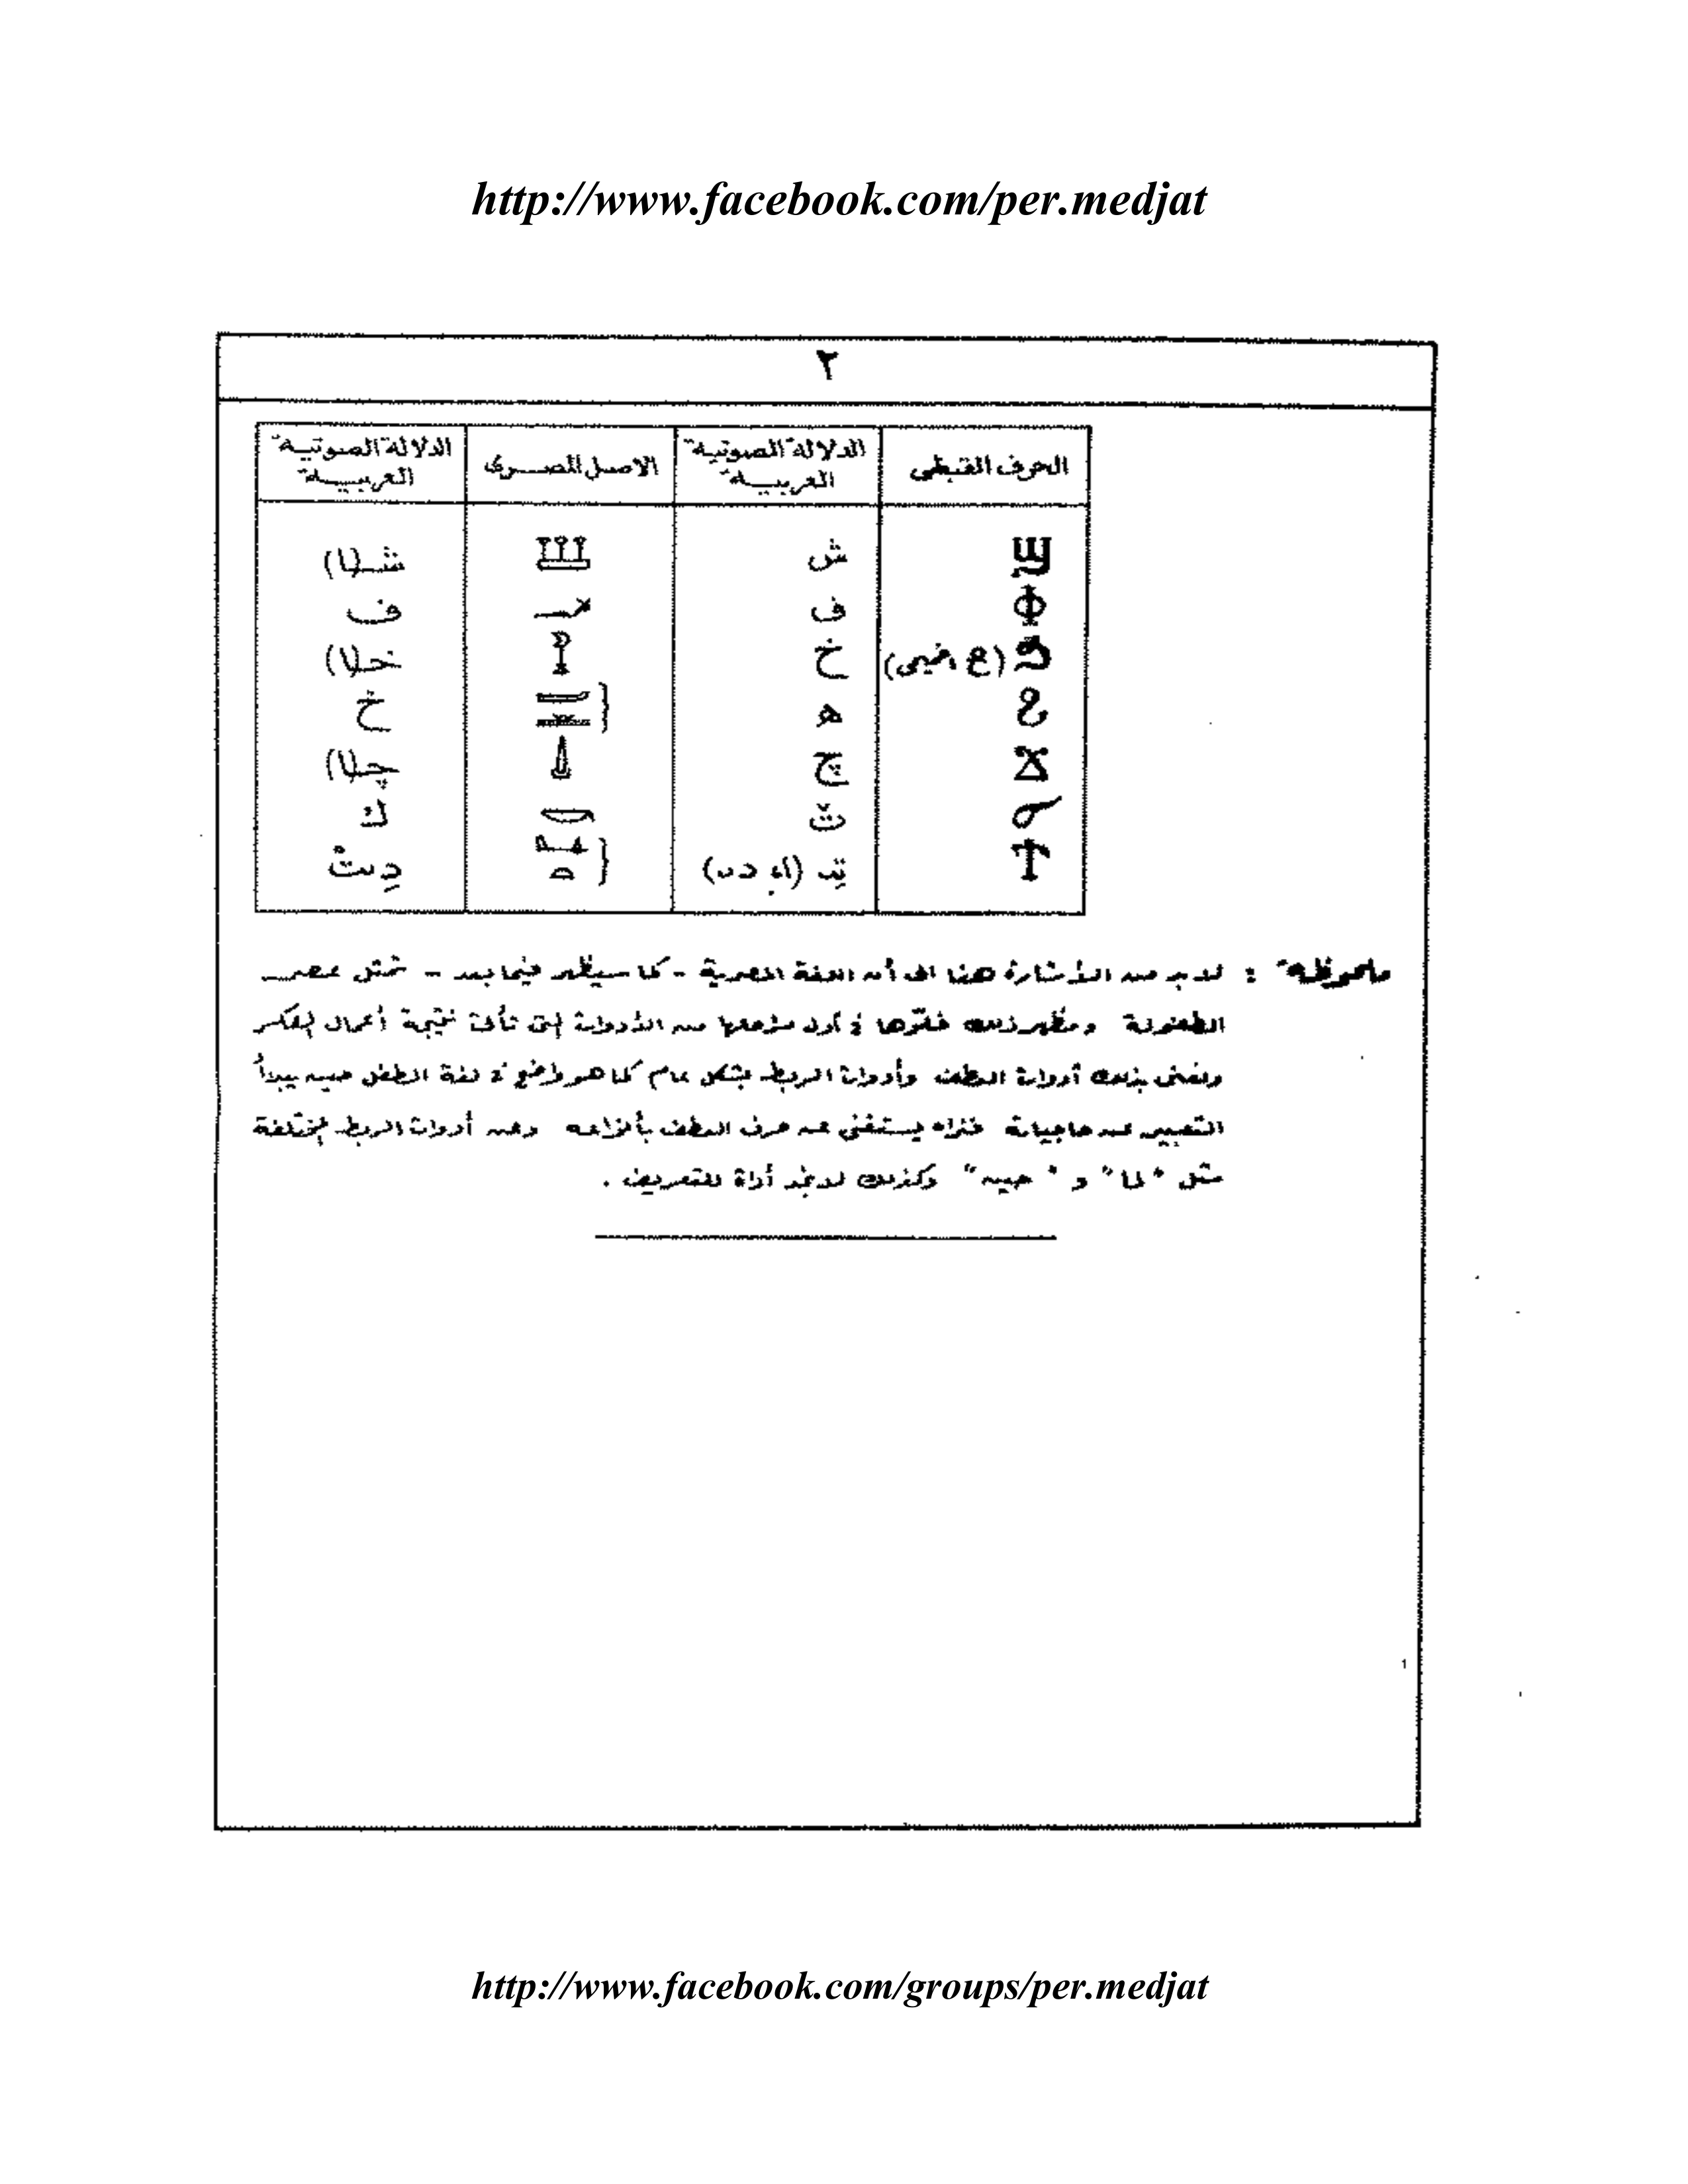 http://www.facebook.com/per.medjat
٢
الحرف القبطى الدلالة الصوتية العربية الاصل المصرى الدلالة الصوتية العربية
ϣ ش 𓆷 شـ(ا)
ⲫ ف 𓆑 ف
(اخميمى) خ 𓆼 خـ(ا)
ϩ ه خ
ϫ چ 𓍑 چـ(ا)
ϭ 𓎡 ك
ϯ تِ دِت
ملحوظة : لابد من الأشارة هنا الى أن اللغة المصرية - كما سيظهر فيما بعد - تمثل عصر
الطفولة ومظهر ذلك خلوّها فى أول مراحلها من الأدوات التى تأتى نتيجة أعمال الفكر
ونعنى بذلك أدوات العطف وأدوات الربط بشكل عام كما هو واضح فى لغة الطفل حين يبدأ
التعبير عن حاجياته فنراه يستغنى عن حرف العطف بأنواعه وعن أدوات الربط المختلفة
مثل "لما" و "حين" وكذلك لانجد أداة للتعريف .
http://www.facebook.com/groups/per.medjat